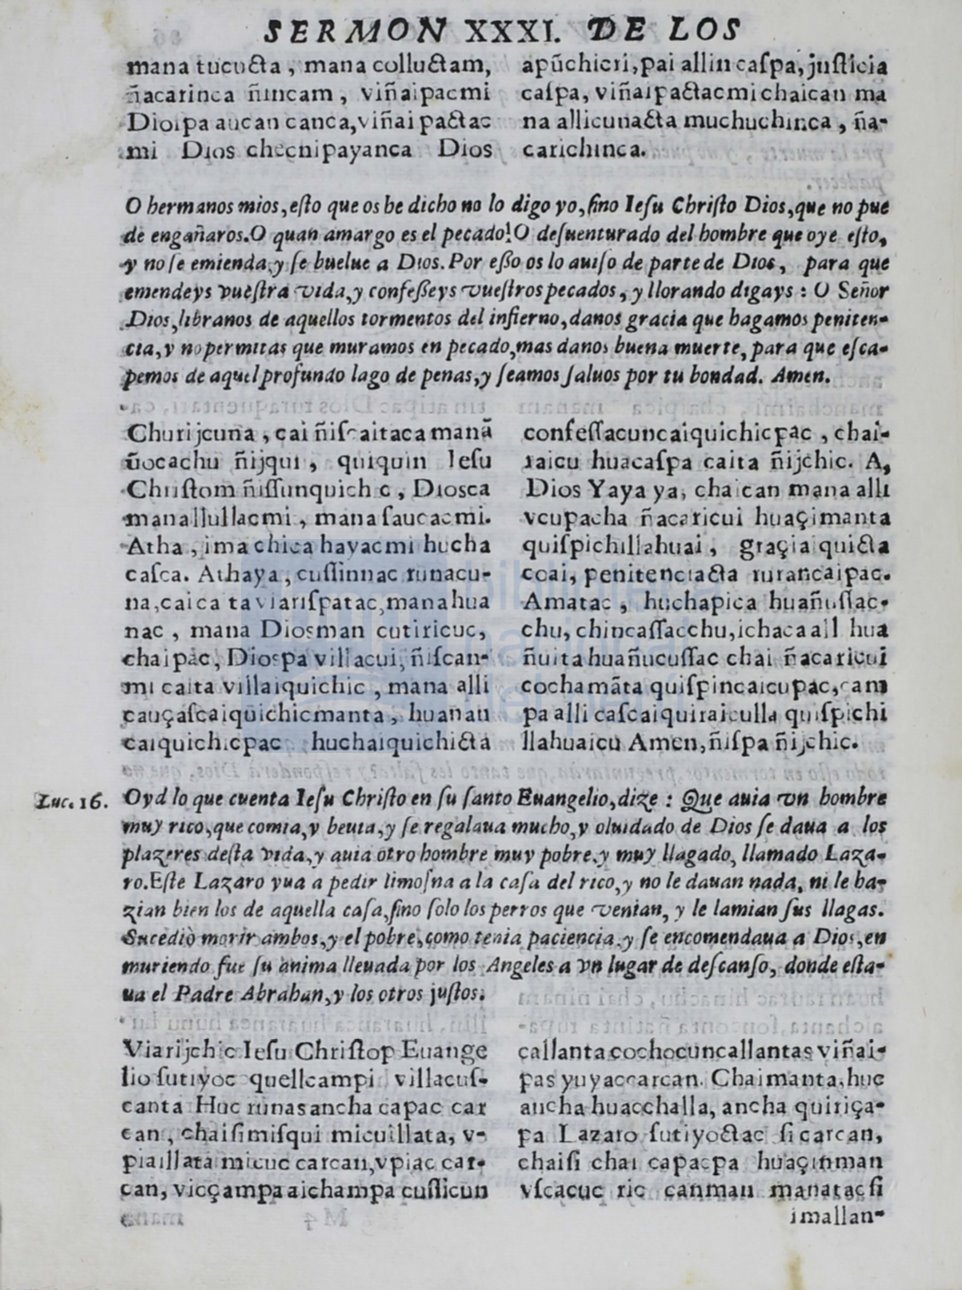 SERMON XXXI. DE LOS
mana tucucta, mana colluctam,
ñacarinca ñincam, viñaipacmi
Diospa aucan canca, viñai pactac
mi Dios checnipayanca Dios
apũchicri, pai allin caſpa, juſticia
caſpa, viñaipactacmi chaican ma
na allicunacta muchuchinca, ña-
carichinca.
O hermanos mios, eſto que os he dicho no lo digo yo, ſino Ieſu Chriſto Dios, que no pue
de engañaros. O quan amargo es el pecado! O deſuenturado del hombre que oye eſto,
y no ſe emienda, y ſe buelue a Dios. Por eſſo os lo auiſo de parte de Dios, para que
emendeys vueſtra vida, y confeſſeys vueſtros pecados, y llorando digays: O Señor
Dios, libranos de aquellos tormentos del infierno, danos gracia que hagamos peniten-
cia, y no permitas que muramos en pecado, mas danos buena muerte, para que eſca-
pemos de aquel profundo lago de penas, y ſeamos ſaluos por tu bondad. Amen.
Churijcuna, cai ñiſcaitaca manã
ũocachu ñijqui, quiquin Ieſu
Chriſtom ñiſſunquichic, Diosca
mana llullacmi, mana ſaucacmi.
Atha, ima chica hayacmi hucha
caſca. Athaya, cuſſinnac runacu-
na, caica ta viariſpatac, mana hua
nac, mana Diosman cutiricuc,
chaipac, Diospa villacui, ñiſcan-
mi caita villaiquichic, mana alli
cauçaſcaiquichicmanta, huanau
caiquichicpac huchaiquichicta
confeſſacuncaiquichicpac, chai-
raicu huacaſpa caita ñijchic. A,
Dios Yaya ya, chaican mana alli
vcupacha ñacaricui huaçimanta
quiſpichillahuai, graçia quicta
ccai, penitenciacta rurancaipac.
Amatac, huchapica huañuſſac-
chu, chincaſſacchu, ichaca all hua
ñuita huañucuſſac chai ñacaricui
cochamãta quiſpincaicupac, cam
pa alli caſcaiquiraiculla quiſpichi
llahuaicu Amen, ñiſpa ñijchic.
Luc. 16.
Oyd lo que cuenta Ieſu Chriſto en ſu ſanto Euangelio, dize: Que auia vn hombre
muy rico, que comia, y beuia, y ſe regalaua mucho, y oluidado de Dios ſe daua a los
plazeres deſta vida, y auia otro hombre muy pobre, y muy llagado, llamado Laza-
ro. Eſte Lazaro yua a pedir limoſna a la caſa del rico, y no le dauan nada, ni le ha-
zian bien los de aquella caſa, ſino ſolo los perros que venian, y le lamian ſus llagas.
Sucedio morir ambos, y el pobre, como tenia paciencia, y ſe encomendaua a Dios, en
muriendo fue ſu anima lleuada por los Angeles a vn lugar de deſcanſo, donde eſta-
ua el Padre Abrahan, y los otros juſtos.
Viarijchic Ieſu Chriſtop Euange
lio ſutiyoc quellcampi villacuſ-
canta Huc runas ancha capac car
can, chaiſi miſqui micuillata, v-
piaillata micuc carcan, vpiac car-
can, vicçampa aichampa cuſſicun
callanta cochocuncallantas viñai-
pas yuyaccarcan. Chaimanta, huc
ancha huacchalla, ancha quiriça-
pa Lazaro ſutiyoctac ſi carcan,
chaiſi chai capacpa huaçinman
vſcacuc ric canman manatacſi
imallan-